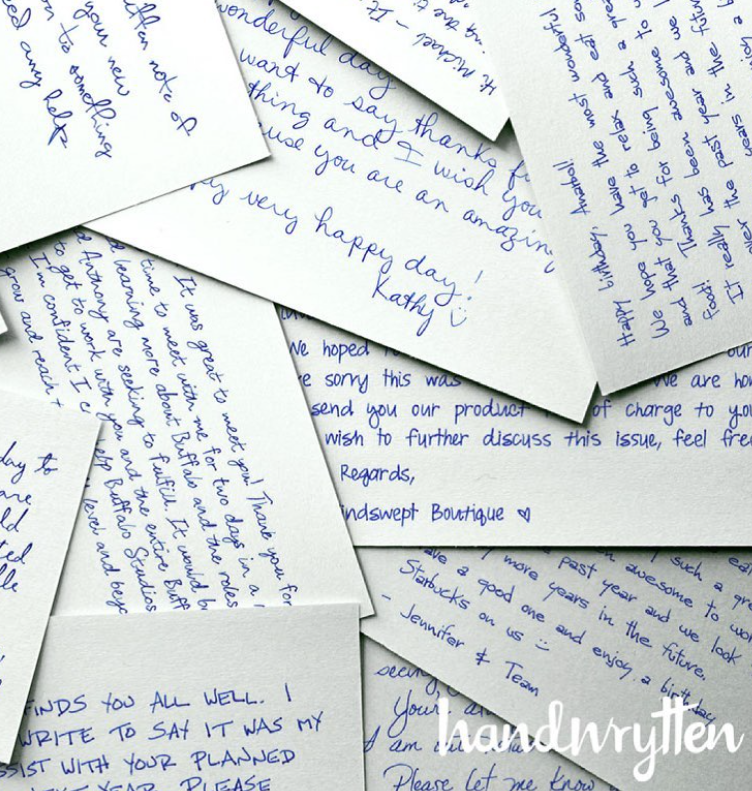 itten note of
your new
on to something
ed any help
wonderful day
want to say thanks f
thing and I wish you
use you are an amazing
py very happy day!
Kathy
Hi Michael
Happy birthday,
We hope you have the most wonderful
and that you get to relax and eat so
food! Thanks for being such a grea
It really has been awesome to w
over the past year and we l
years in the futur
It was great to meet you! Thank you for
time to meet with me for two days in a
learning more about Buffalo and the roles
Anthony are seeking to fulfill. It would b
to get to work with you and the entire Buff
I'm confident I c help Buffalo Studios
grow and reach level and beyo
We hoped
e sorry this was We are ho
send you our product of charge to yo
wish to further discuss this issue, feel free
Regards,
indswept Boutique ♡
day to
are
ld
ted
such a gre
awesome to wor
past year and we look
more years in the future.
ave a good one and enjoy a birthday
Starbucks on us
- Jennifer & Team
FINDS YOU ALL WELL. I
WRITE TO SAY IT WAS MY
SSIST WITH YOUR PLANNED
YEAR. PLEASE
seeing
Your
I am
Please let me know
handwrytten